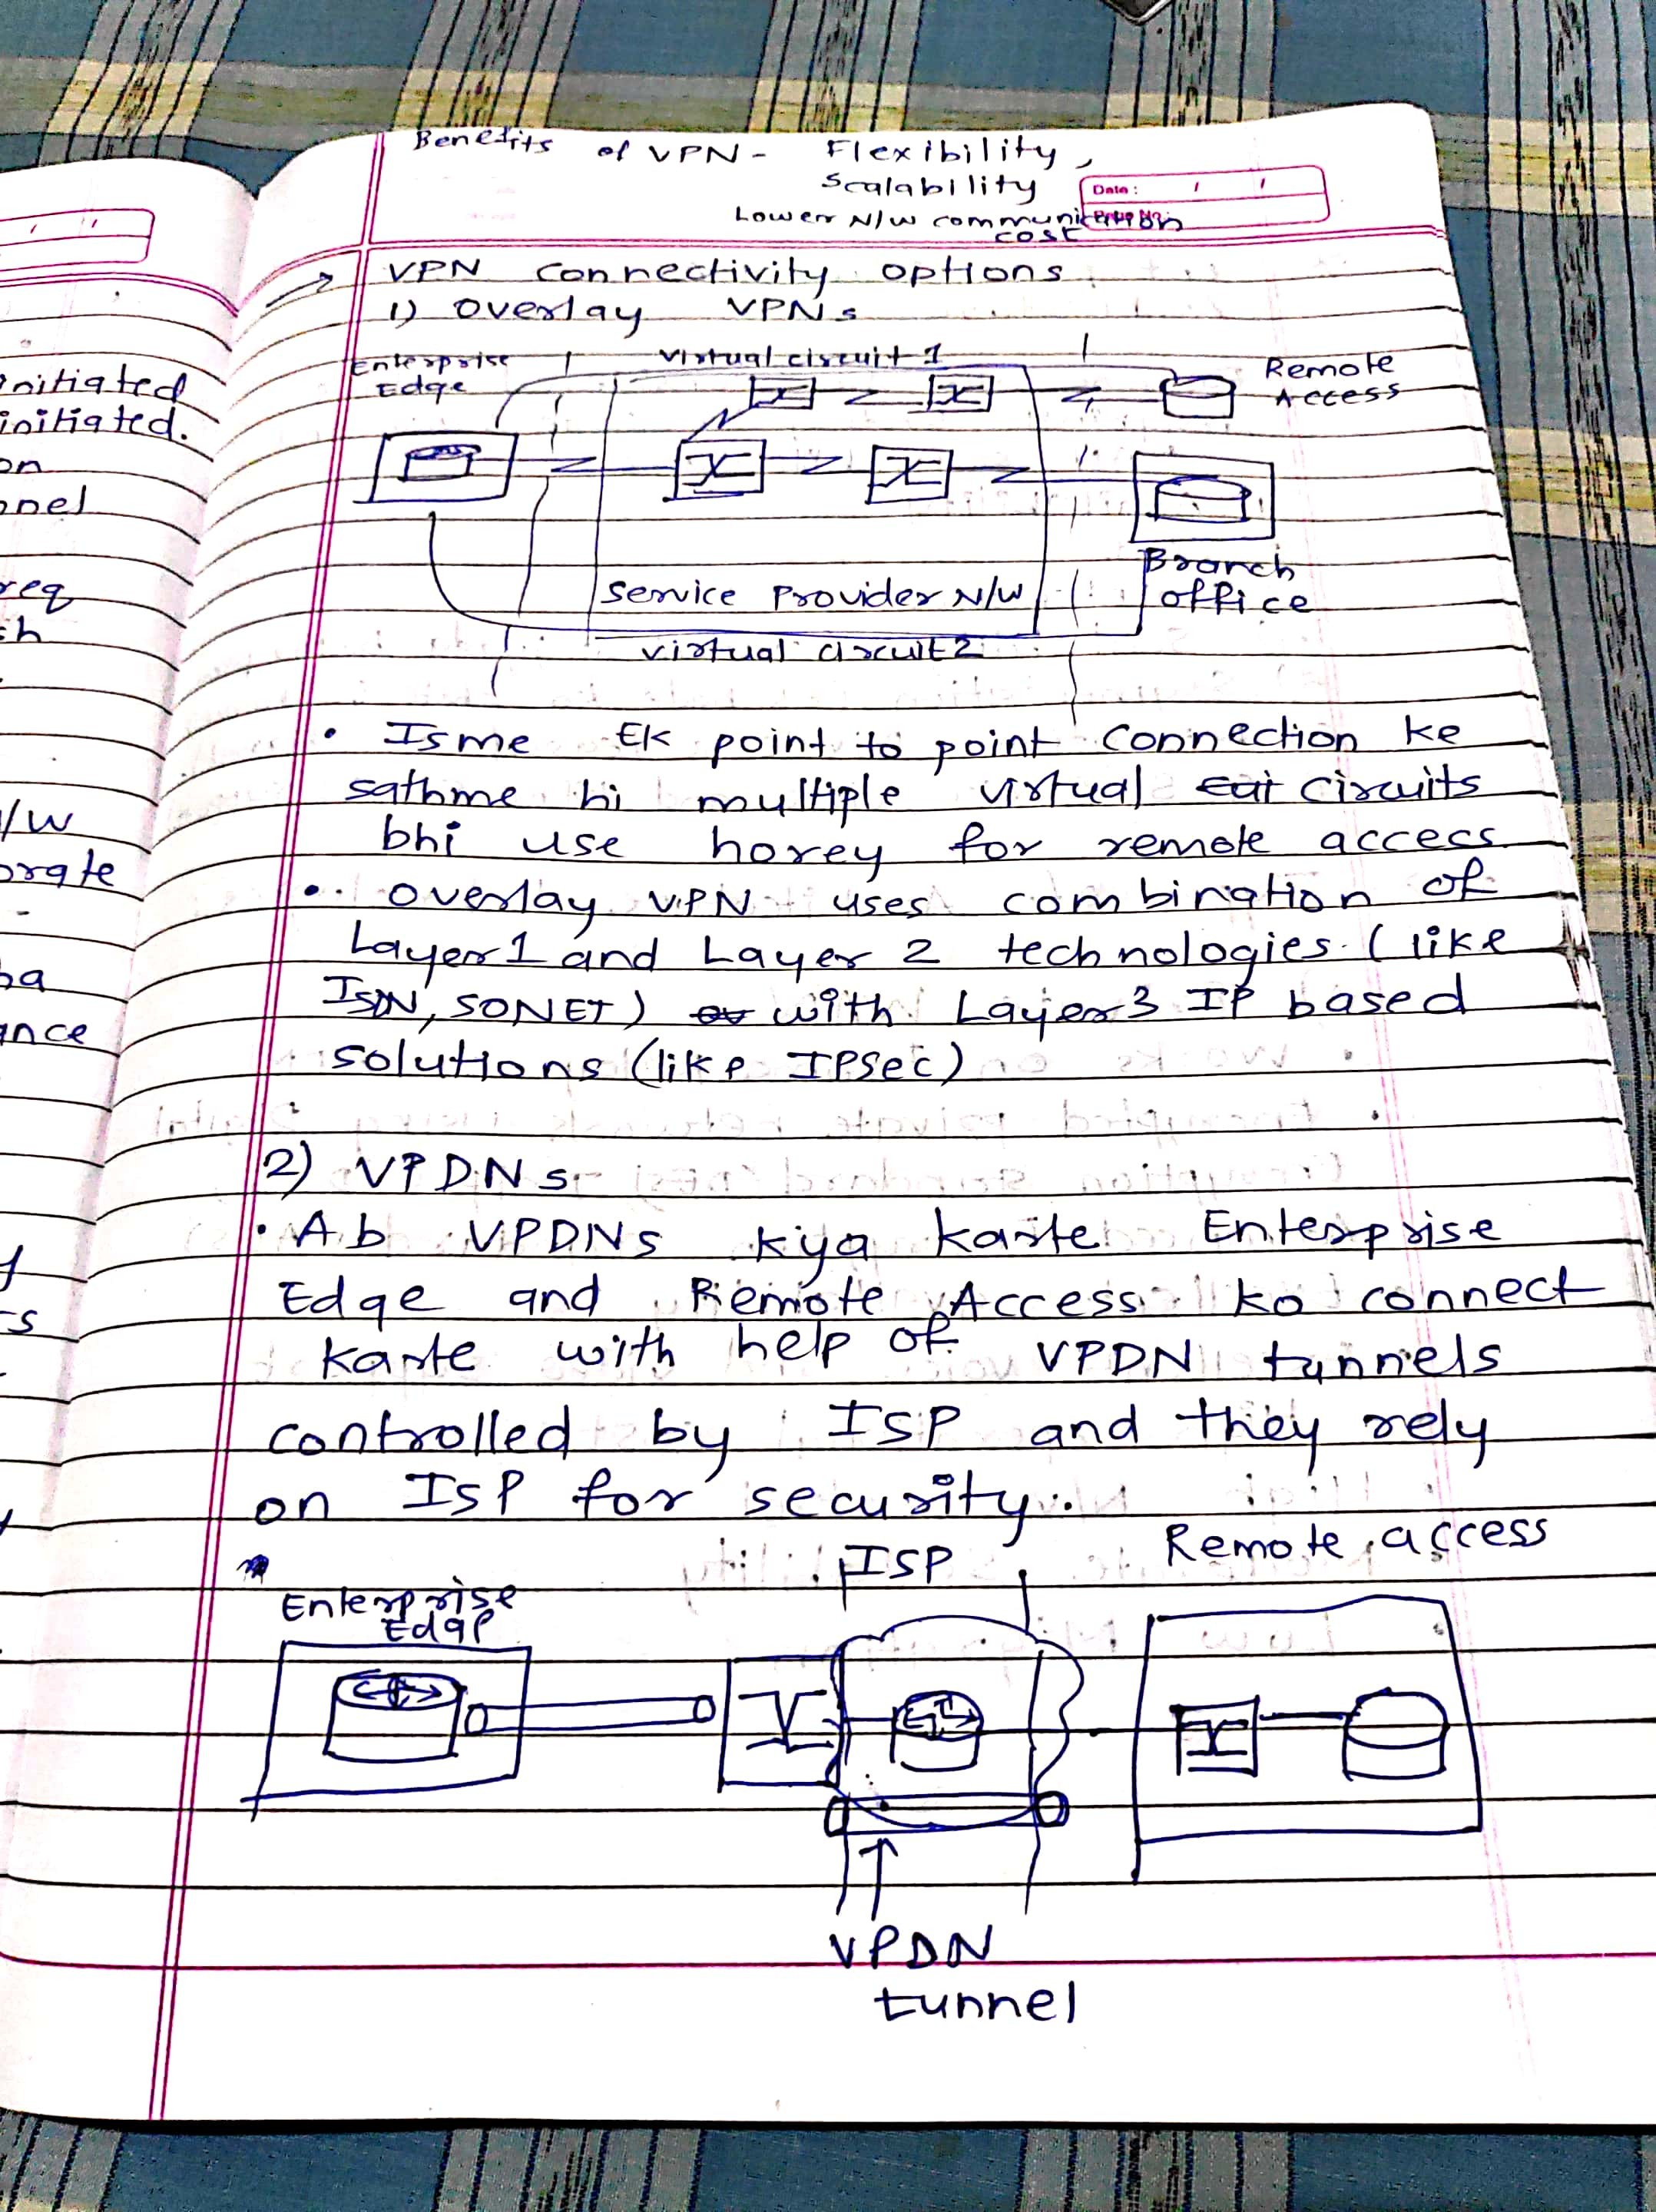 Benefits of VPN - Flexibility,
Scalability
Lower N/W communication
cost
Date : / /
VPN connectivity options
1) Overlay VPNs
Enterprise
Edge
virtual circuit 1
Remote
Access
Service Provider N/W
Branch
office
virtual circuit 2
• Isme Ek point to point connection ke
sathme hi multiple virtual circuits
bhi use horey for remote access
• overlay VPN uses combination of
Layer 1 and Layer 2 technologies (like
ISDN, SONET) with Layer 3 IP based
solutions (like IPsec)
2) VPDNs
• Ab VPDNs kya karte Enterprise
Edge and Remote Access ko connect
karte with help of VPDN tunnels
controlled by ISP and they rely
on ISP for security.
ISP
Remote access
Enterprise
Edge
VPDN
tunnel
initiated
initiated.
on
nnel
req
ch
/w
orate
ba
ance